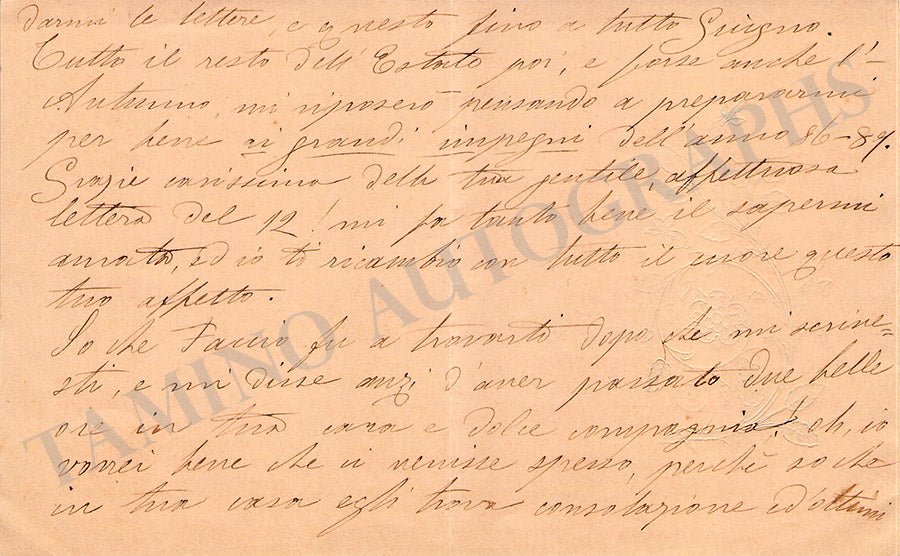 darmi le lettere, e questo fino a tutto Giugno.
Tutto il resto dell'Estate poi, e forse anche l'-
Autunno, mi riposerò pensando a prepararmi
per bene ai grandi impegni dell'anno 86-87.
Grazie carissima della tua gentile, affettuosa
lettera del 12! mi fa tanto bene il sapermi
amata, ed io ti ricambio con tutto il cuore questo
tuo affetto.
So che Faccio fu a trovarti dopo che mi scrive=
sti, e mi disse anzi d'aver passato due belle
ore in tua cara e dolce compagnia! oh, io
vorrei bene che ci venisse spesso, perchè so che
in tua casa egli trova consolazione ed ottimi
TAMINO AUTOGRAPHS